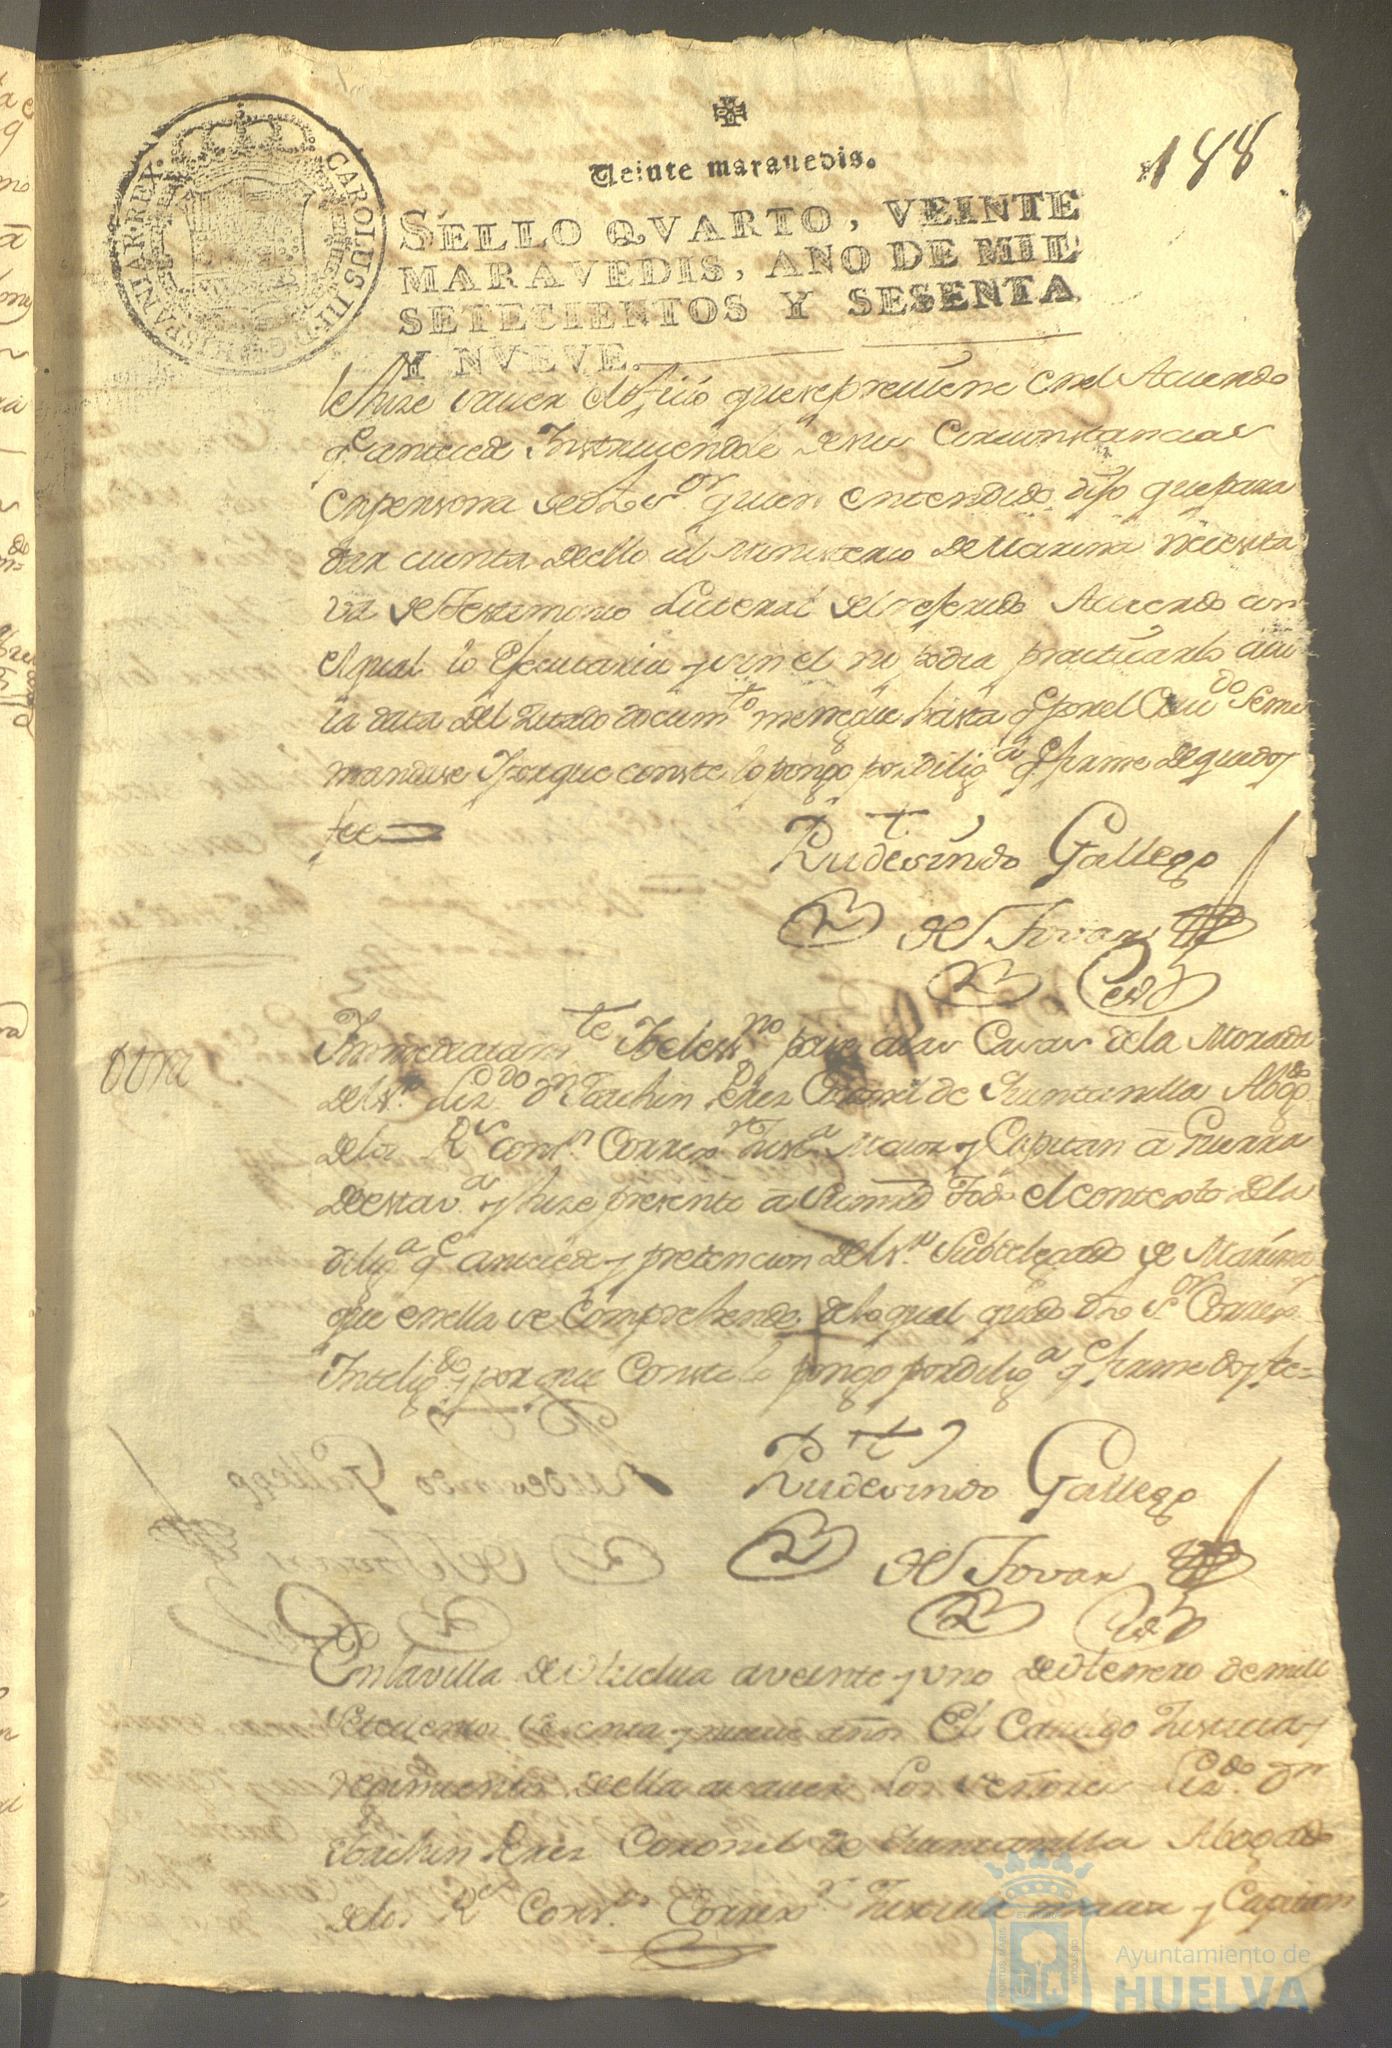 188
Veinte maravedis.
SELLO QVARTO, VEINTE
MARAVEDIS, AÑO DE MIL
SETECIENTOS Y SESENTA
Y NVEVE.
CAROLUS III D G HISPANIAR REX
le hize saver el oficio que se previene en el Acuerdo
q.e antecede Instruiendole de sus Circunstancias
en persona de d.ho s.or quien entendido dijo que para
dar cuenta de ello al Ministerio de Marina necesita
va de Testimonio Literal del referido Acuerdo con
el qual lo Ejecutaria y sin el no podia practicarlo
la data del zitado docum.to mereque hasta q.e por el Cavi.do se me
mandase Y porque conste lo pongo por dilig.a q.e firme de que doy
fee
Rudesindo Gallego
de Tovar
Otra
Inmediatam.te Yo el ess.no pase a las Casas de la Morada
del s.r Liz.do d.n Joachin Perez Coronel de Quintanilla Abog.do
de los R.s Cons.s Correx.r Just.a Maior y Capitan a Guerra
de esta v.a y hize presente a su mrd todo el contexto de la
dilig.a q.e antecede y pretencion del s.r Subdelegado de Marina
que en ella se Comprehende de lo qual quedo dho s.or Correx.r
Intelig.do y por que Conste lo pongo por dilig.a q.e firme doy fe=
Rudesindo Gallego
de Tovar
En la villa de Huelva a veinte y uno de Henero de mill
setecientos sesenta y nueve años El Cavildo Justicia y
regimiento de ella a saver los señores Liz.do d.n
Joachin Perez Coronel de Quintanilla Abogado
de los R.es Cons.os Correx.r Justicia maior y Capitan
Ayuntamiento de
HUELVA